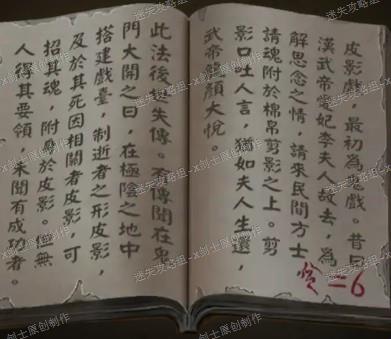 皮影戲，最初為鬼戲。昔日
漢武帝愛妃李夫人故去，為
解思念之情，請來民間方士
請魂附於棉帛剪影之上。剪
影口吐人言，猶如夫人生還，
武帝龍顏大悅。
此法後失傳。傳聞在鬼
門大開之日，在極陰之地中
搭建戲臺，制逝者之形皮影，
及於其死因相關者皮影，可
招其魂，附身於皮影。但無
人得其要領，未聞有成功者。
癸=6
迷失攻略组-x剑士原创制作